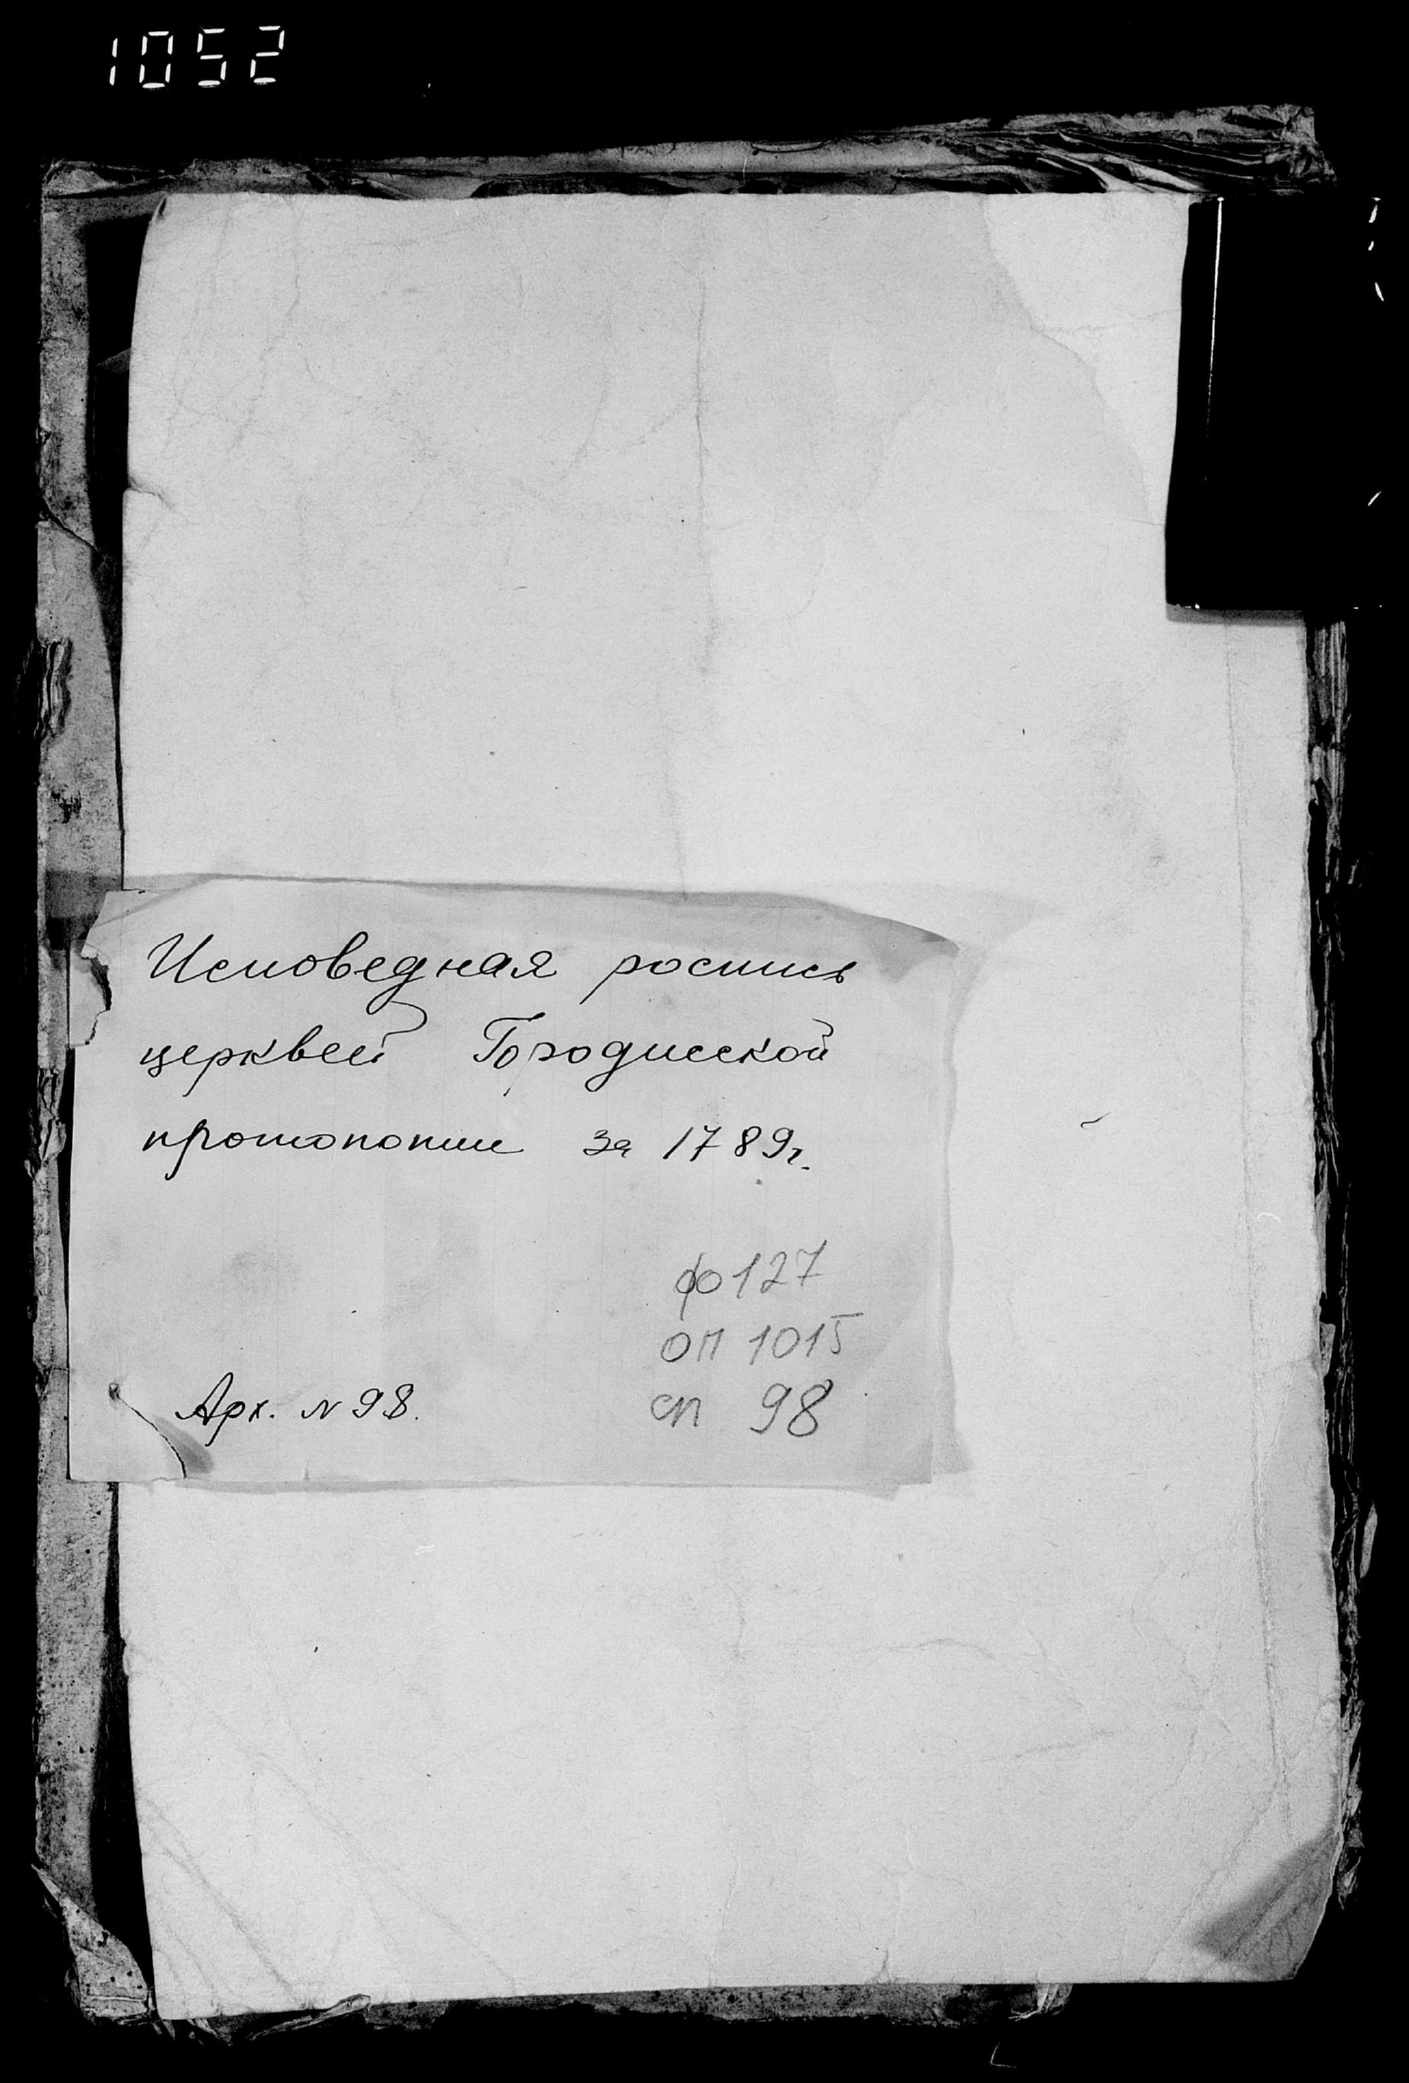 1052
Исповедная роспись
церквей Городисской
протопопии за 1789г.
ф 127
оп 1015
сп 98
Арх. № 98.